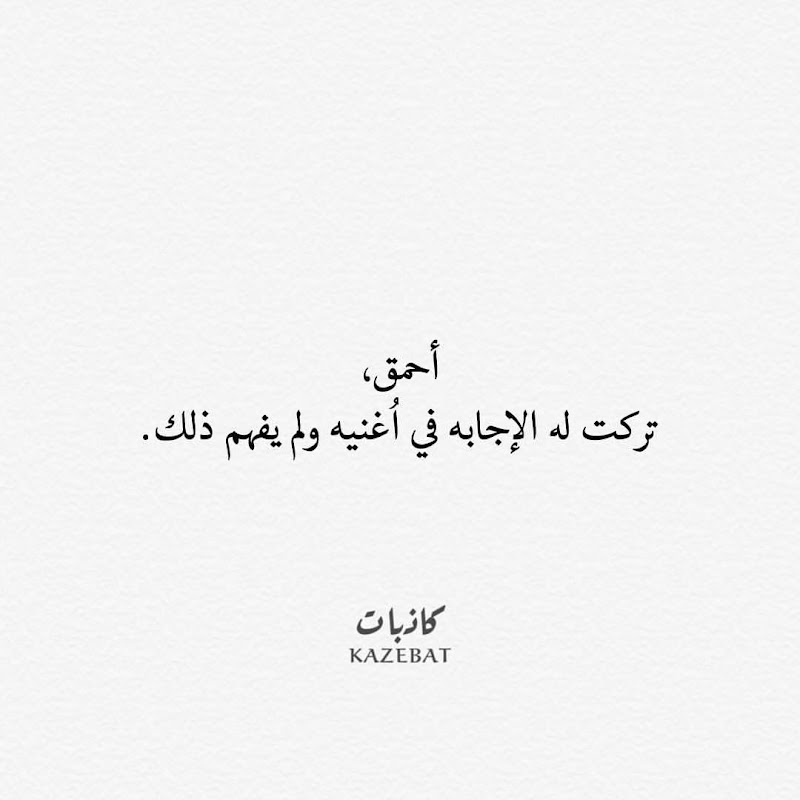 أحمق،
تركت له الإجابه في اُغنيه ولم يفهم ذلك.
كاذبات
KAZEBAT